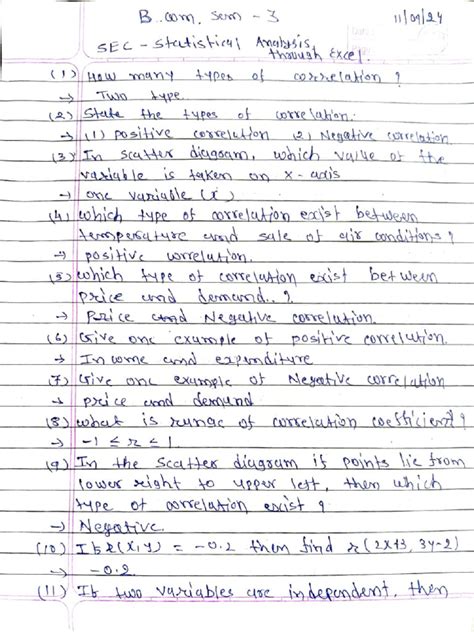 B.com. Sem - 3
11/09/24
SEC - Statistical Analysis
through Excel.
(1) How many types of correlation ?
→ Two type.
(2) State the types of correlation.
→ (1) positive correlation 2) Negative correlation
(3) In scatter diagram, which value of the
variable is taken on x-axis
→ one variable (x)
(4) which type of correlation exist between
temperature and sale of air conditions ?
→ positive correlation.
(5) which type of correlation exist between
price and demand..?
→ Price and Negative correlation.
(6) Give one example of positive correlation.
→ Income and expenditure
(7) Give one example of Negative correlation
→ price and demand
(8) what is range of correlation coefficient?
→ -1 ≤ r ≤ 1.
(9) In the scatter diagram if points lie from
lower right to upper left, then which
type of correlation exist ?
→ Negative.
(10) If r(x,y) = -0.2 then find r(2x+3, 3y-2)
→ -0.2
(11) If two variables are independent, then